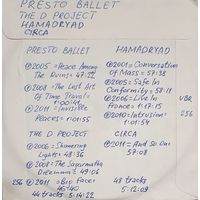 PRESTO BALLET
THE D PROJECT
HAMADRYAD
CIRCA
PRESTO BALLET
2005 = Peace Among
The Ruins = 47:22
2008 = The Lost Art
Of Time Travel =
2011 = Invisible
Places = 1:01:55
THE D PROJECT
2006 = Shimmering
Lights = 48:36
2008 = The Sagarmatha
Dilemma = 49:06
256 2011 = Big Face =
46:40
44 tracks 5:14:22
HAMADRYAD
2001 = Conversation
Of Mass = 57:38
2005 = Safe In
Conformity = 58:11
2006 = Live In
France = 1:17:15
2010 = Intrusion =
1:01:54
VBR
256
CIRCA
2011 = And So On =
57:08
48 tracks
5:12:09